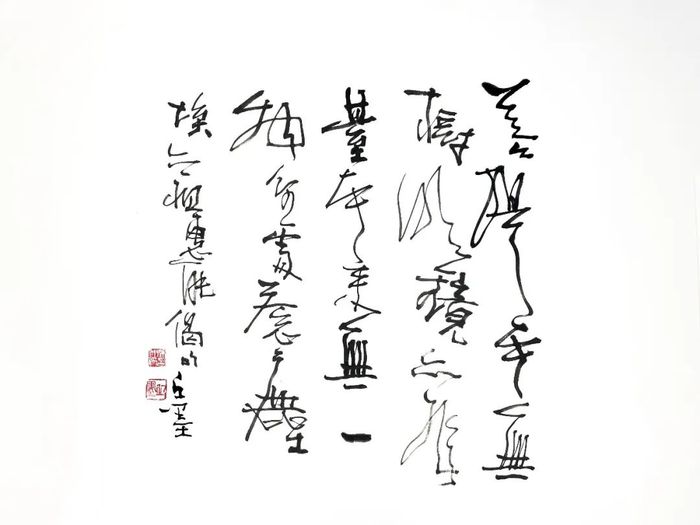 菩提本無
樹明鏡亦非
臺本來無一
物何處惹塵
埃六祖惠能偈